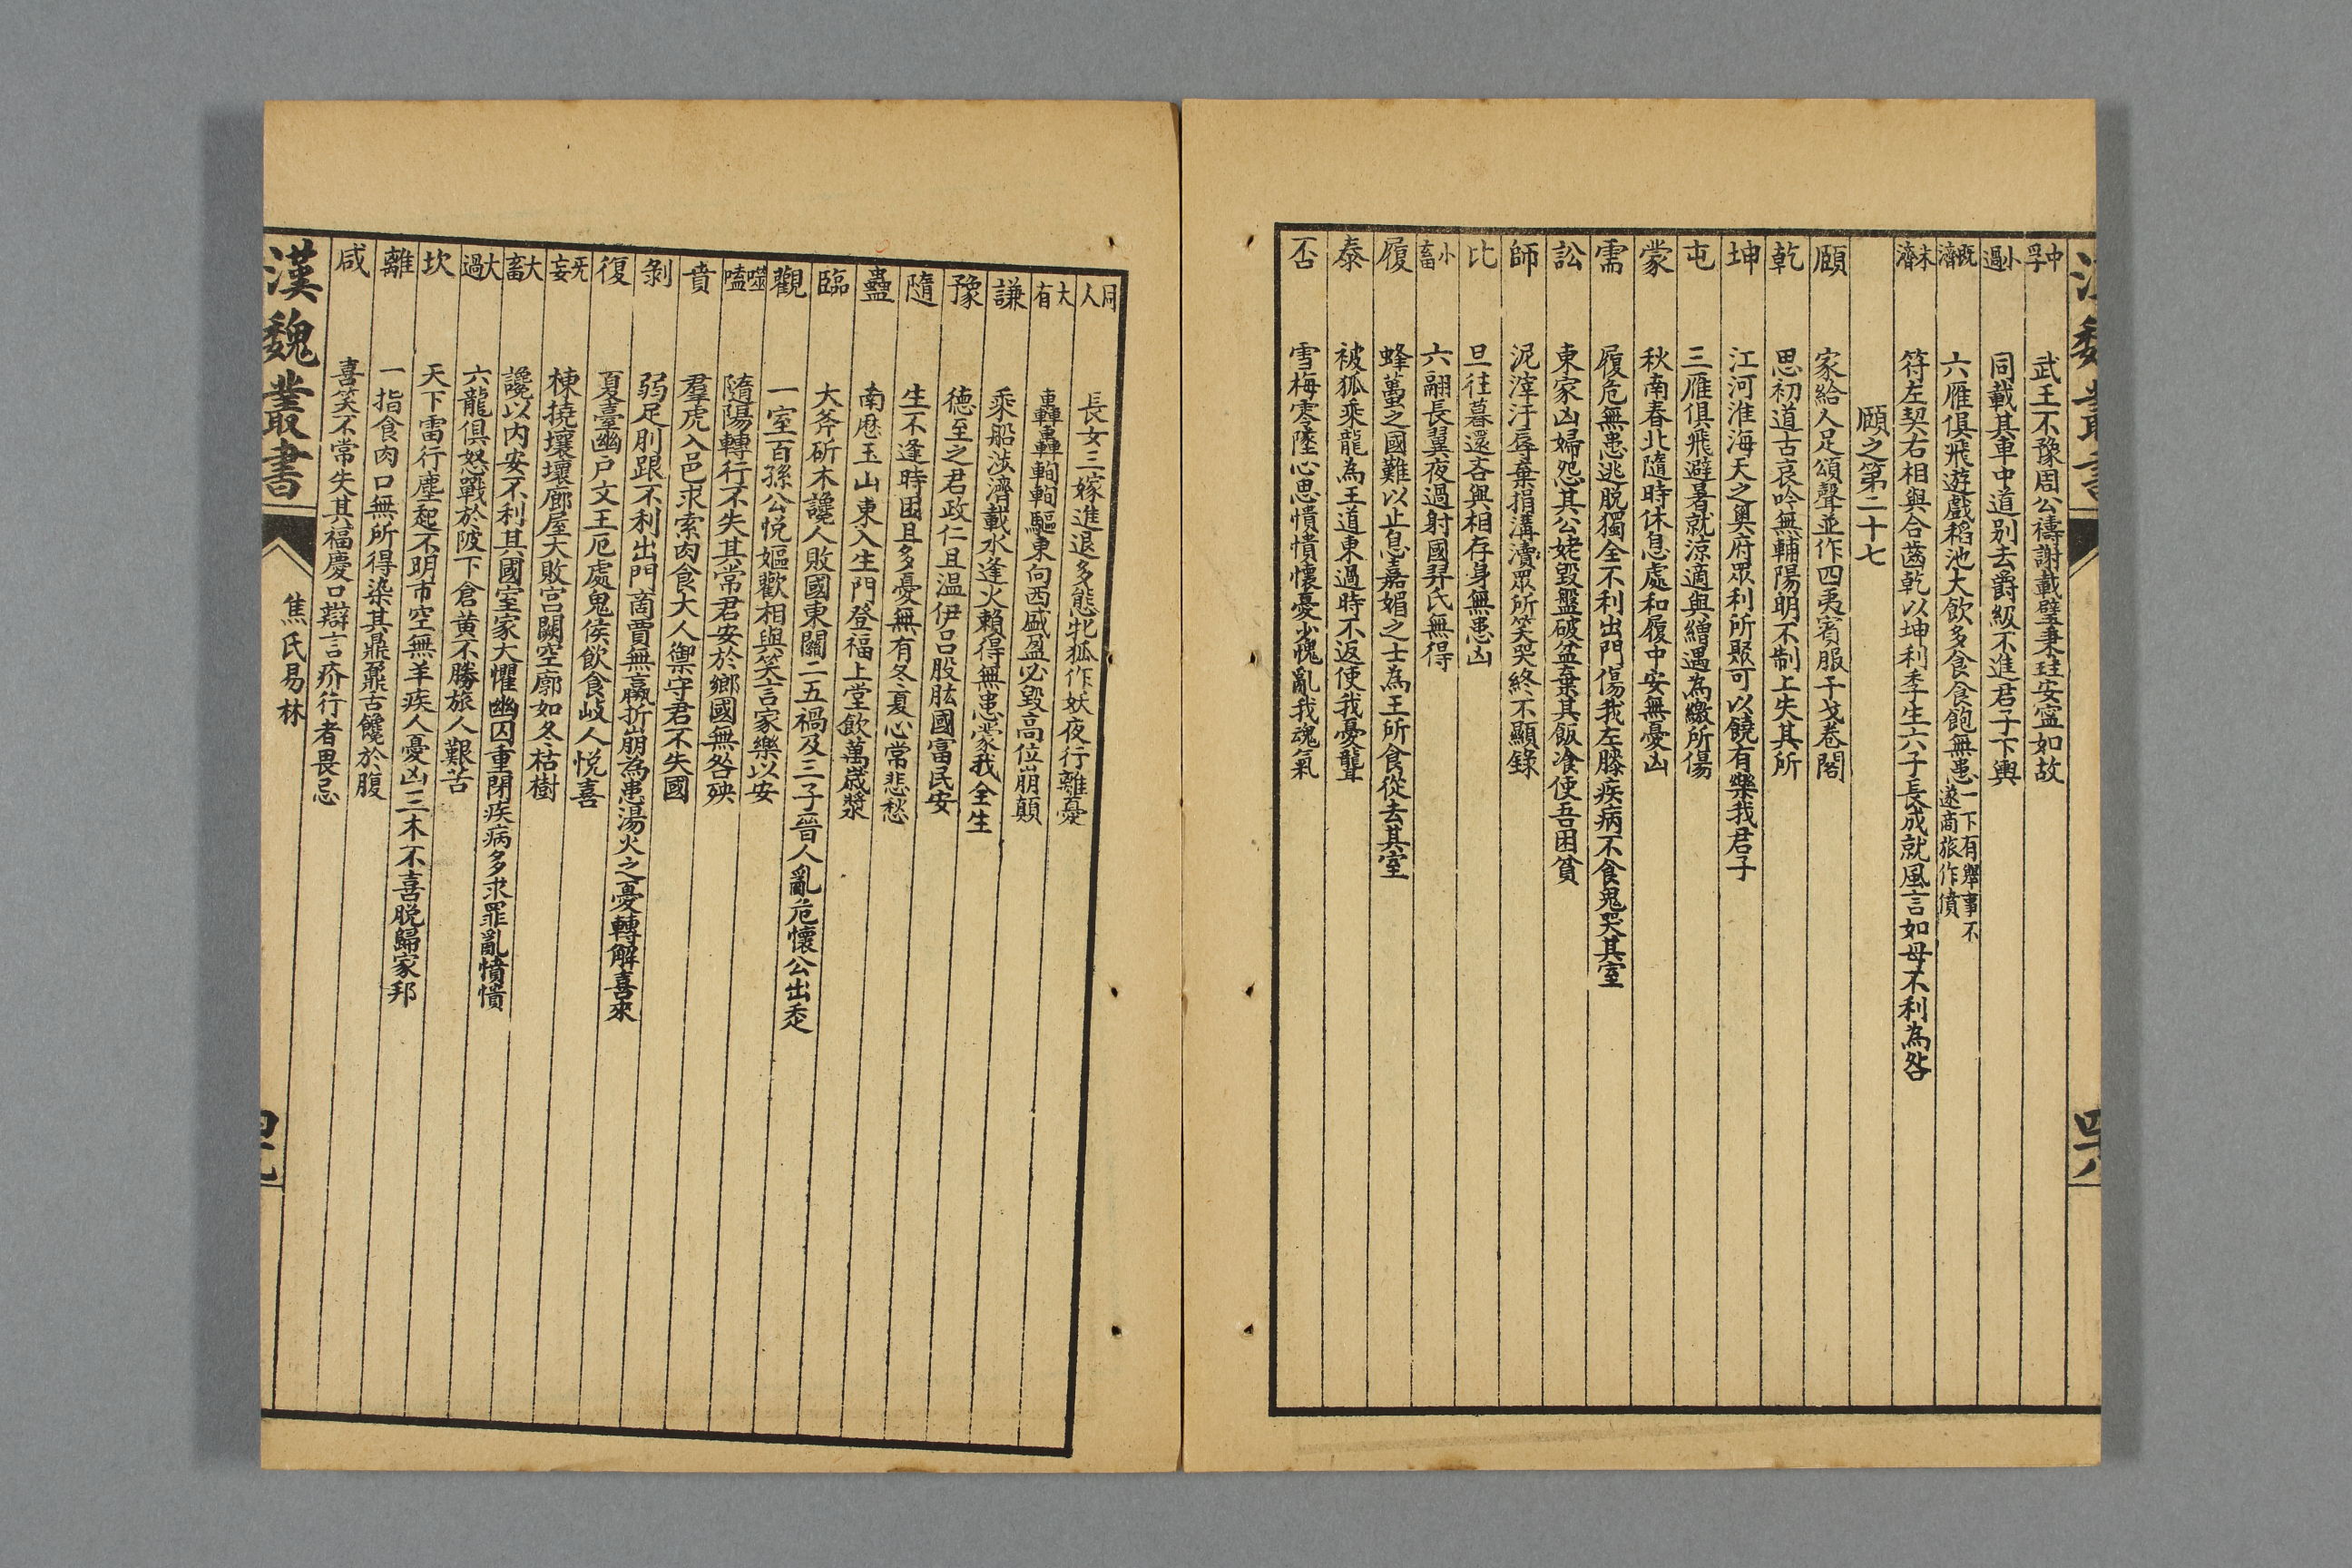 中孚 武王不豫周公禱謝載璧秉珪安寧如故
小過 同載其車中道別去爵級不進君子下輿
既濟 六雁俱飛遊戲稻池大飲多食食飽無患一下有舉事不遂商旅作債
未濟 符左契右相與合齒乾以坤利季生六子長成就風言如母不利為咎
頤之第二十七
頤 家給人足頌聲並作四夷賓服干戈卷閣
乾 思初道古哀吟無輔陽明不制上失其所
坤 江河淮海天之奧府眾利所聚可以饒有樂我君子
屯 三雁俱飛避暑就涼適與繒遇為繳所傷
蒙 秋南春北隨時休息處和履中安無憂凶
需 履危無患逃脫獨全不利出門傷我左膝疾病不食鬼哭其室
訟 東家凶婦怨其公姥毀盤破盆棄其飯飧使吾困貧
師 泥滓汙辱棄捐溝瀆眾所笑哭終不顯錄
比 旦往暮還各與相存身無患凶
小畜 六翮長翼夜過射國羿氏無得
履 蜂蠆之國難以止息嘉媚之士為王所食從去其室
泰 被狐乘龍為王道東過時不返使我憂聾
否 雪梅零墜心思憒憒懷憂少愧亂我魂氣
同人 長女三嫁進退多態牝狐作妖夜行離憂
大有 轟轟輷輷驅東向西盛盈必毀高位崩顛
謙 乘船涉濟載水逢火賴得無患蒙我全生
豫 德至之君政仁且温伊呂股肱國富民安
隨 生不逢時困且多憂無有冬夏心常悲愁
蠱 南歷玉山東入生門登福上堂飲萬歲漿
臨 大斧斫木讒人敗國東關二五禍及三子晉人亂危懷公出走
觀 一室百孫公悅嫗歡相與笑言家樂以安
噬嗑 隨陽轉行不失其常君安於鄉國無咎殃
賁 羣虎入邑求索肉食大人禦守君不失國
剝 弱足刖跟不利出門商賈無贏折崩為患湯火之憂轉解喜來
復 夏臺幽戶文王厄處鬼侯飲食岐人悅喜
无妄 棟撓壞壞廊屋大敗宮闕空廓如冬枯樹
大畜 讒以內安不利其國室家大懼幽囚重閉疾病多求罪亂憒憒
大過 六龍俱怒戰於陂下倉黃不勝旅人艱苦
坎 天下雷行塵起不明市空無羊疾人憂凶三木不喜脫歸家邦
離 一指食肉口無所得染其鼎鼐舌饞於腹
咸 喜笑不常失其福慶口辯言疥行者畏忌
漢魏叢書 焦氏易林